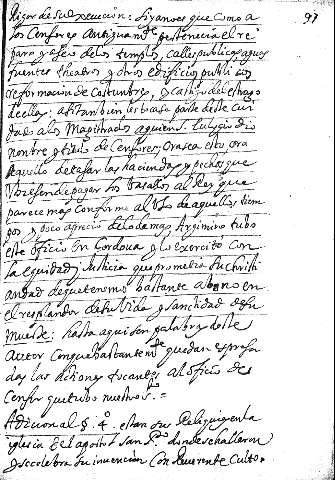 97
rigor de su execucion: Si ya no es que como a
los Censores Antiguam.te pertenecia el re
paro y aseo de los templos, calles publicas aguas
fuentes theatros y otros edificios publicos
reformacion de Costumbres, y castigo del estrago
de ellas: asi tambien les tocase parte deste cui
dado a los Magistrados a quien S. Eulogio dio
nombre y titulo de Censores, o sea este o sea
aquello de tasar las haciendas y pechos que
debiesen de pagar los Vasallos al Rey que
parece mas conforme al Uso de aquellos tiem
pos y poco aprecio de lo demas Argimiro tubo
este oficio En Cordoua y lo exercitó con
la equidad y Justicia que prometia Su Christi
andad de que tenemos bastante abono en
el resplandor de su Vida y santidad de su
muerte: hasta aqui son palabras deste
Autor Con que bastantem.te quedan expresa
das las acciones tocantes al oficio de
Censor que tubo nuestro S. =
Adicion al §. 4.º estan sus Reliquias en la
iglesia de el apostol san P.º donde se hallaron
y se celebra su inuencion Con Reuerente Culto.